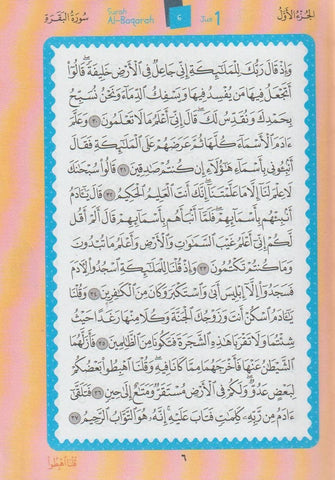 الجزء الأول
Juz 1
٦
Surah
Al-Baqarah
سورة البقرة
وإذ قال ربك للملائكة إني جاعل في الأرض خليفة قالوا
أتجعل فيها من يفسد فيها ويسفك الدماء ونحن نسبح
بحمدك ونقدس لك قال إني أعلم ما لا تعلمون ٣٠ وعلم
ءادم الأسماء كلها ثم عرضهم على الملائكة فقال
أنبئوني بأسماء هؤلاء إن كنتم صادقين ٣١ قالوا سبحانك
لا علم لنا إلا ما علمتنا إنك أنت العليم الحكيم ٣٢ قال يئادم
أنبئهم بأسمائهم فلما أنبأهم بأسمائهم قال ألم أقل
لكم إني أعلم غيب السماوات والأرض وأعلم ما تبدون
وما كنتم تكتمون ٣٣ وإذ قلنا للملائكة اسجدوا لآدم
فسجدوا إلا إبليس أبى واستكبر وكان من الكافرين ٣٤ وقلنا
يئادم اسكن أنت وزوجك الجنة وكلا منها رغدا حيث
شئتما ولا تقربا هذه الشجرة فتكونا من الظالمين ٣٥ فأزلهما
الشيطان عنها فأخرجهما مما كانا فيه وقلنا اهبطوا بعضكم
لبعض عدو ولكم في الأرض مستقر ومتاع إلى حين ٣٦ فتلقى
ءادم من ربه كلمات فتاب عليه إنه هو التواب الرحيم ٣٧
٦
قلنا اهبطوا